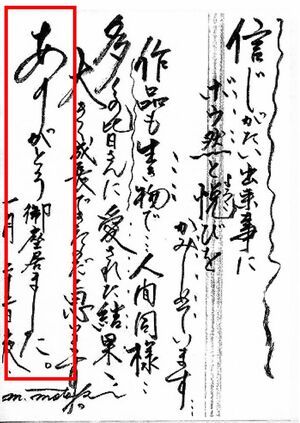 信じがたい出来事に
ボウ然と悦びを
よろこ
かみしめています…
作品も生き物で…人間同様…
多くの皆さんに愛された結果…
大きく成長できたんだと思います。
ありがとう御座居ました。
一月